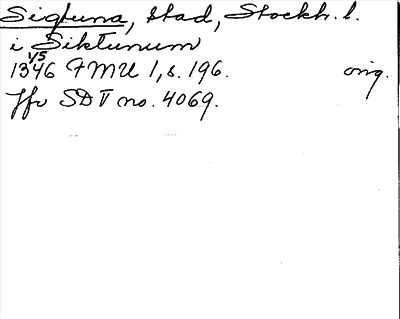 Sigtuna, stad, Stockh. l.
i Siktunum
1/5
1346 FMU 1, s. 196. orig.
Jfr SD V no. 4069.